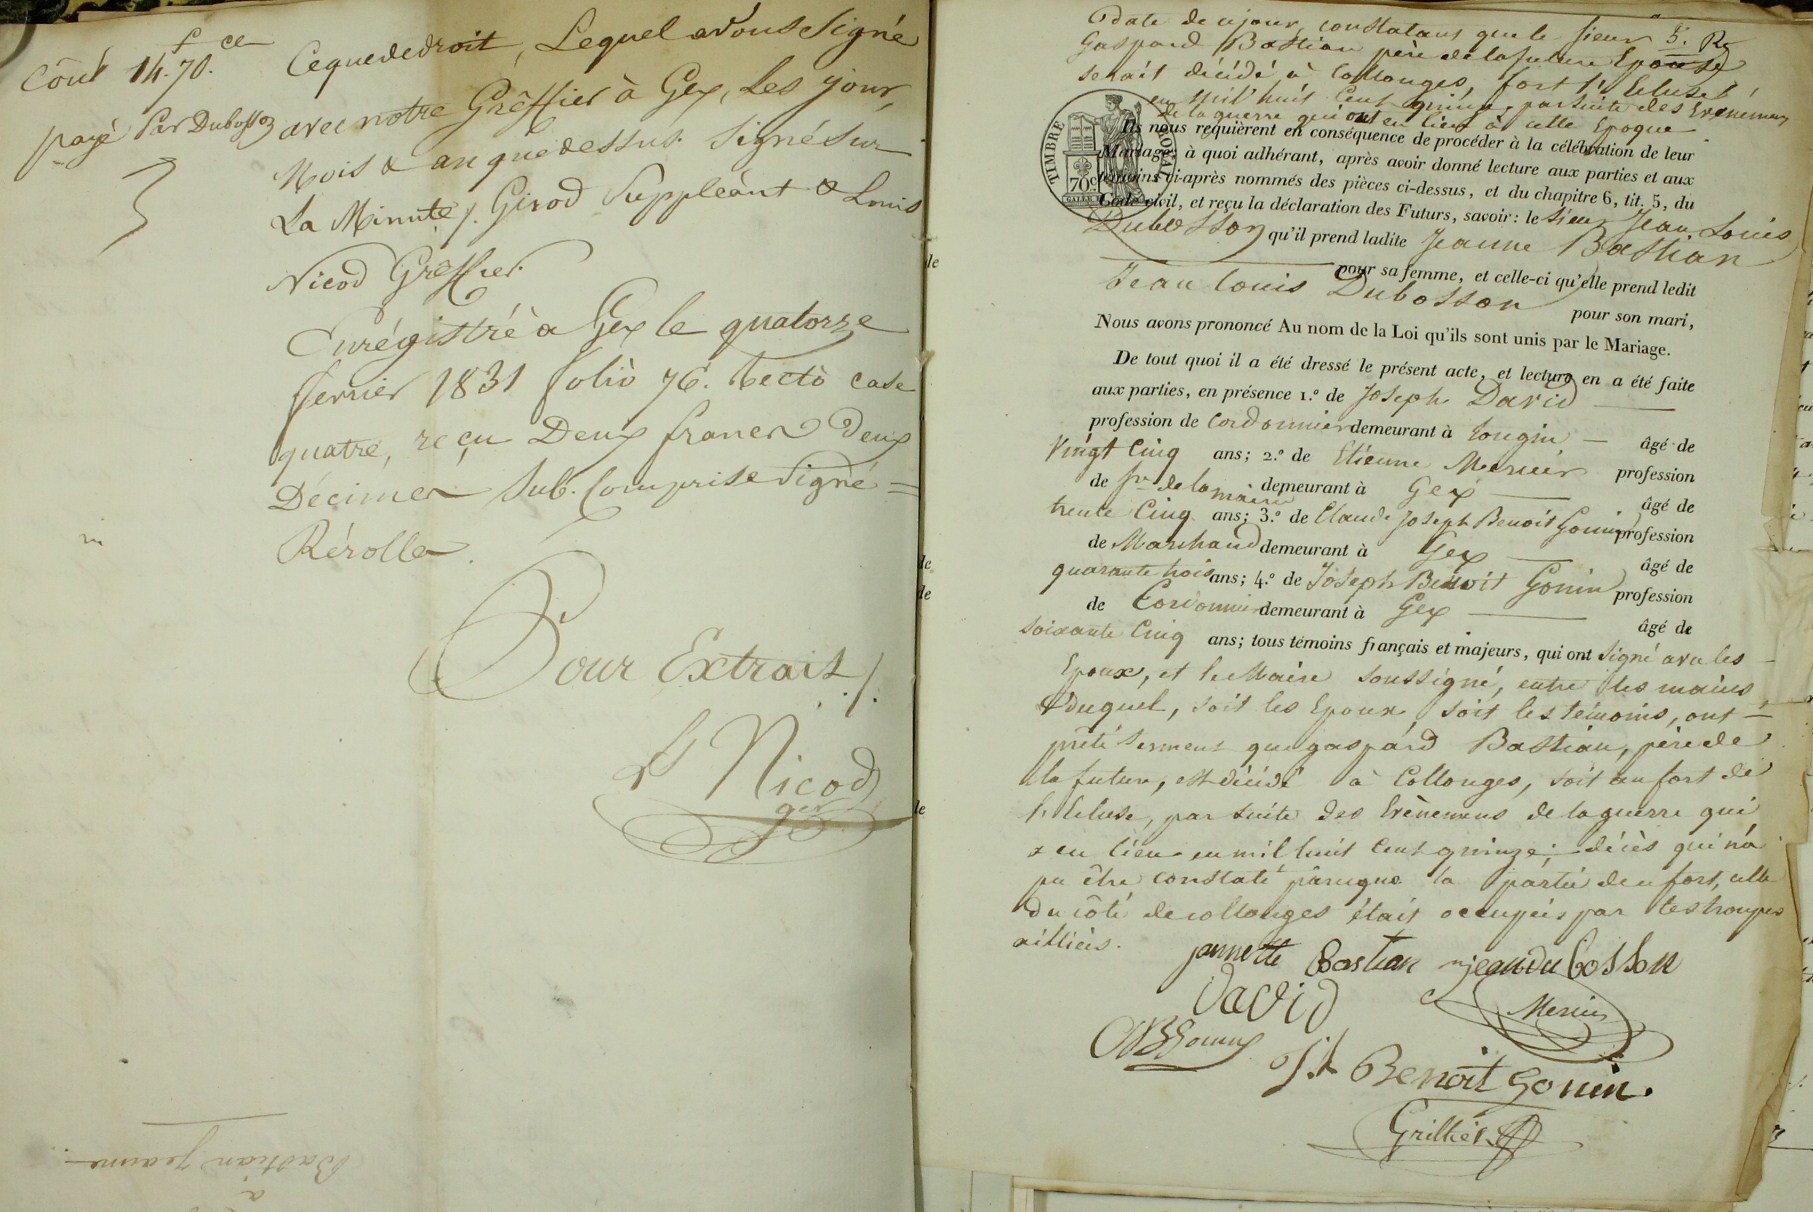 Coût 14.f 70.ce
payé Par Dubosson
Ce que de droit, Lequel avons Signé
avec notre Grêffier à Gex, Les jour,
Mois & an que dessus. Signé Sur
La Minute /. Girod Suppléant & Louis
Nicod Grêffier.
Enrégistré à Gex le quatorze
fevrier 1831 folio 76. Recto case
quatre, reçu Deux francs deux
Décimes Sub. Comprise Signé =
Rérolle.
Pour Extrait ./.
Ls Nicod
ger
Bastian Jeanne
à
date de ce jour, constatant que le Sieur 5. Re
Gaspard Bastian père de la future Epouse
serait décédé à Collonges, fort l'Ecluse
en mil huit Cent quinze, par suite des Evènemens
de la guerre qui ont eu lieu à cette Epoque
TIMBRE ROYAL
70c
Ils nous requièrent en conséquence de procéder à la célébration de leur
Mariage, à quoi adhérant, après avoir donné lecture aux parties et aux
témoins ci-après nommés des pièces ci-dessus, et du chapitre 6, tit. 5, du
Code civil, et reçu la déclaration des Futurs, savoir : le Sieur Jean Louis
Dubosson qu'il prend ladite Jeanne Bastian
pour sa femme, et celle-ci qu'elle prend ledit
Jean Louis Dubosson pour son mari,
Nous avons prononcé Au nom de la Loi qu'ils sont unis par le Mariage.
De tout quoi il a été dressé le présent acte, et lecture en a été faite
aux parties, en présence 1.º de Joseph David
profession de Cordonnier demeurant à Tougin âgé de
Vingt Cinq ans ; 2.º de Etienne Mercier profession
de Sre de la mairie demeurant à Gex âgé de
trente Cinq ans ; 3.º de Claude Joseph Benoit Gonin profession
de Marchand demeurant à Gex âgé de
quarante trois ans ; 4.º de Joseph Benoit Gonin profession
de Cordonnier demeurant à Gex âgé de
soixante Cinq ans ; tous témoins français et majeurs, qui ont signé avec les
Epoux, et le Maire soussigné, entre les mains
duquel, soit les Epoux, soit les témoins, ont
prêté serment que gaspard Bastian, père de
la future, est décédé à Collonges, soit au fort de
l'Ecluse, par suite des Evènemens de la guerre qui
a eu lieu en mil huit Cent quinze ; décès qui n'a
pu être constaté parceque la partie de ce fort, celle
du côté de collonges était occupée par les troupes
alliées.
jannette Bastian jean dubosson
David
Mercier
CJBGonin
J.h Benoît Gonin.
Grilliet